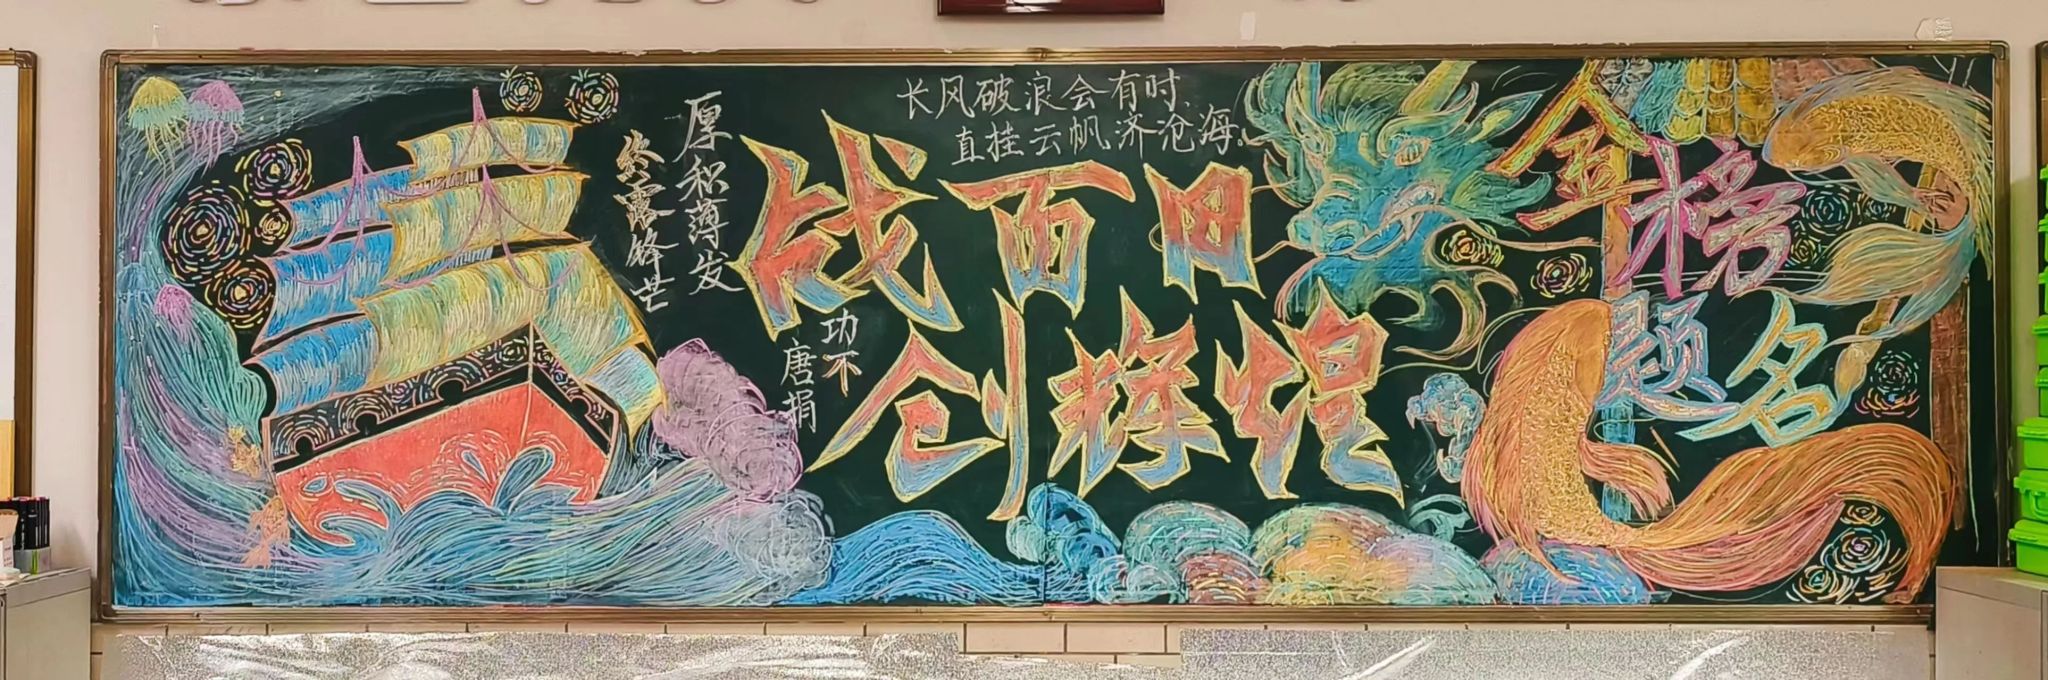 厚积薄发
终露锋芒
长风破浪会有时,
直挂云帆济沧海。
战百日
创辉煌
功不
唐捐
金榜
题名